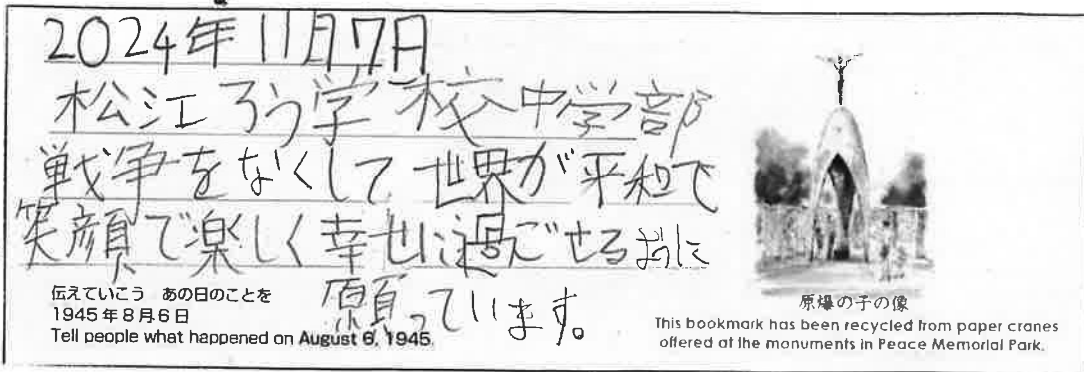 2024年11月7日
松江ろう学校中学部
戦争をなくして世界が平和で
笑顔で楽しく幸せ過ごせるように
願っています。
伝えていこう あの日のことを
1945年8月6日
Tell people what happened on August 6, 1945.
原爆の子の像
This bookmark has been recycled from paper cranes
offered at the monuments in Peace Memorial Park.